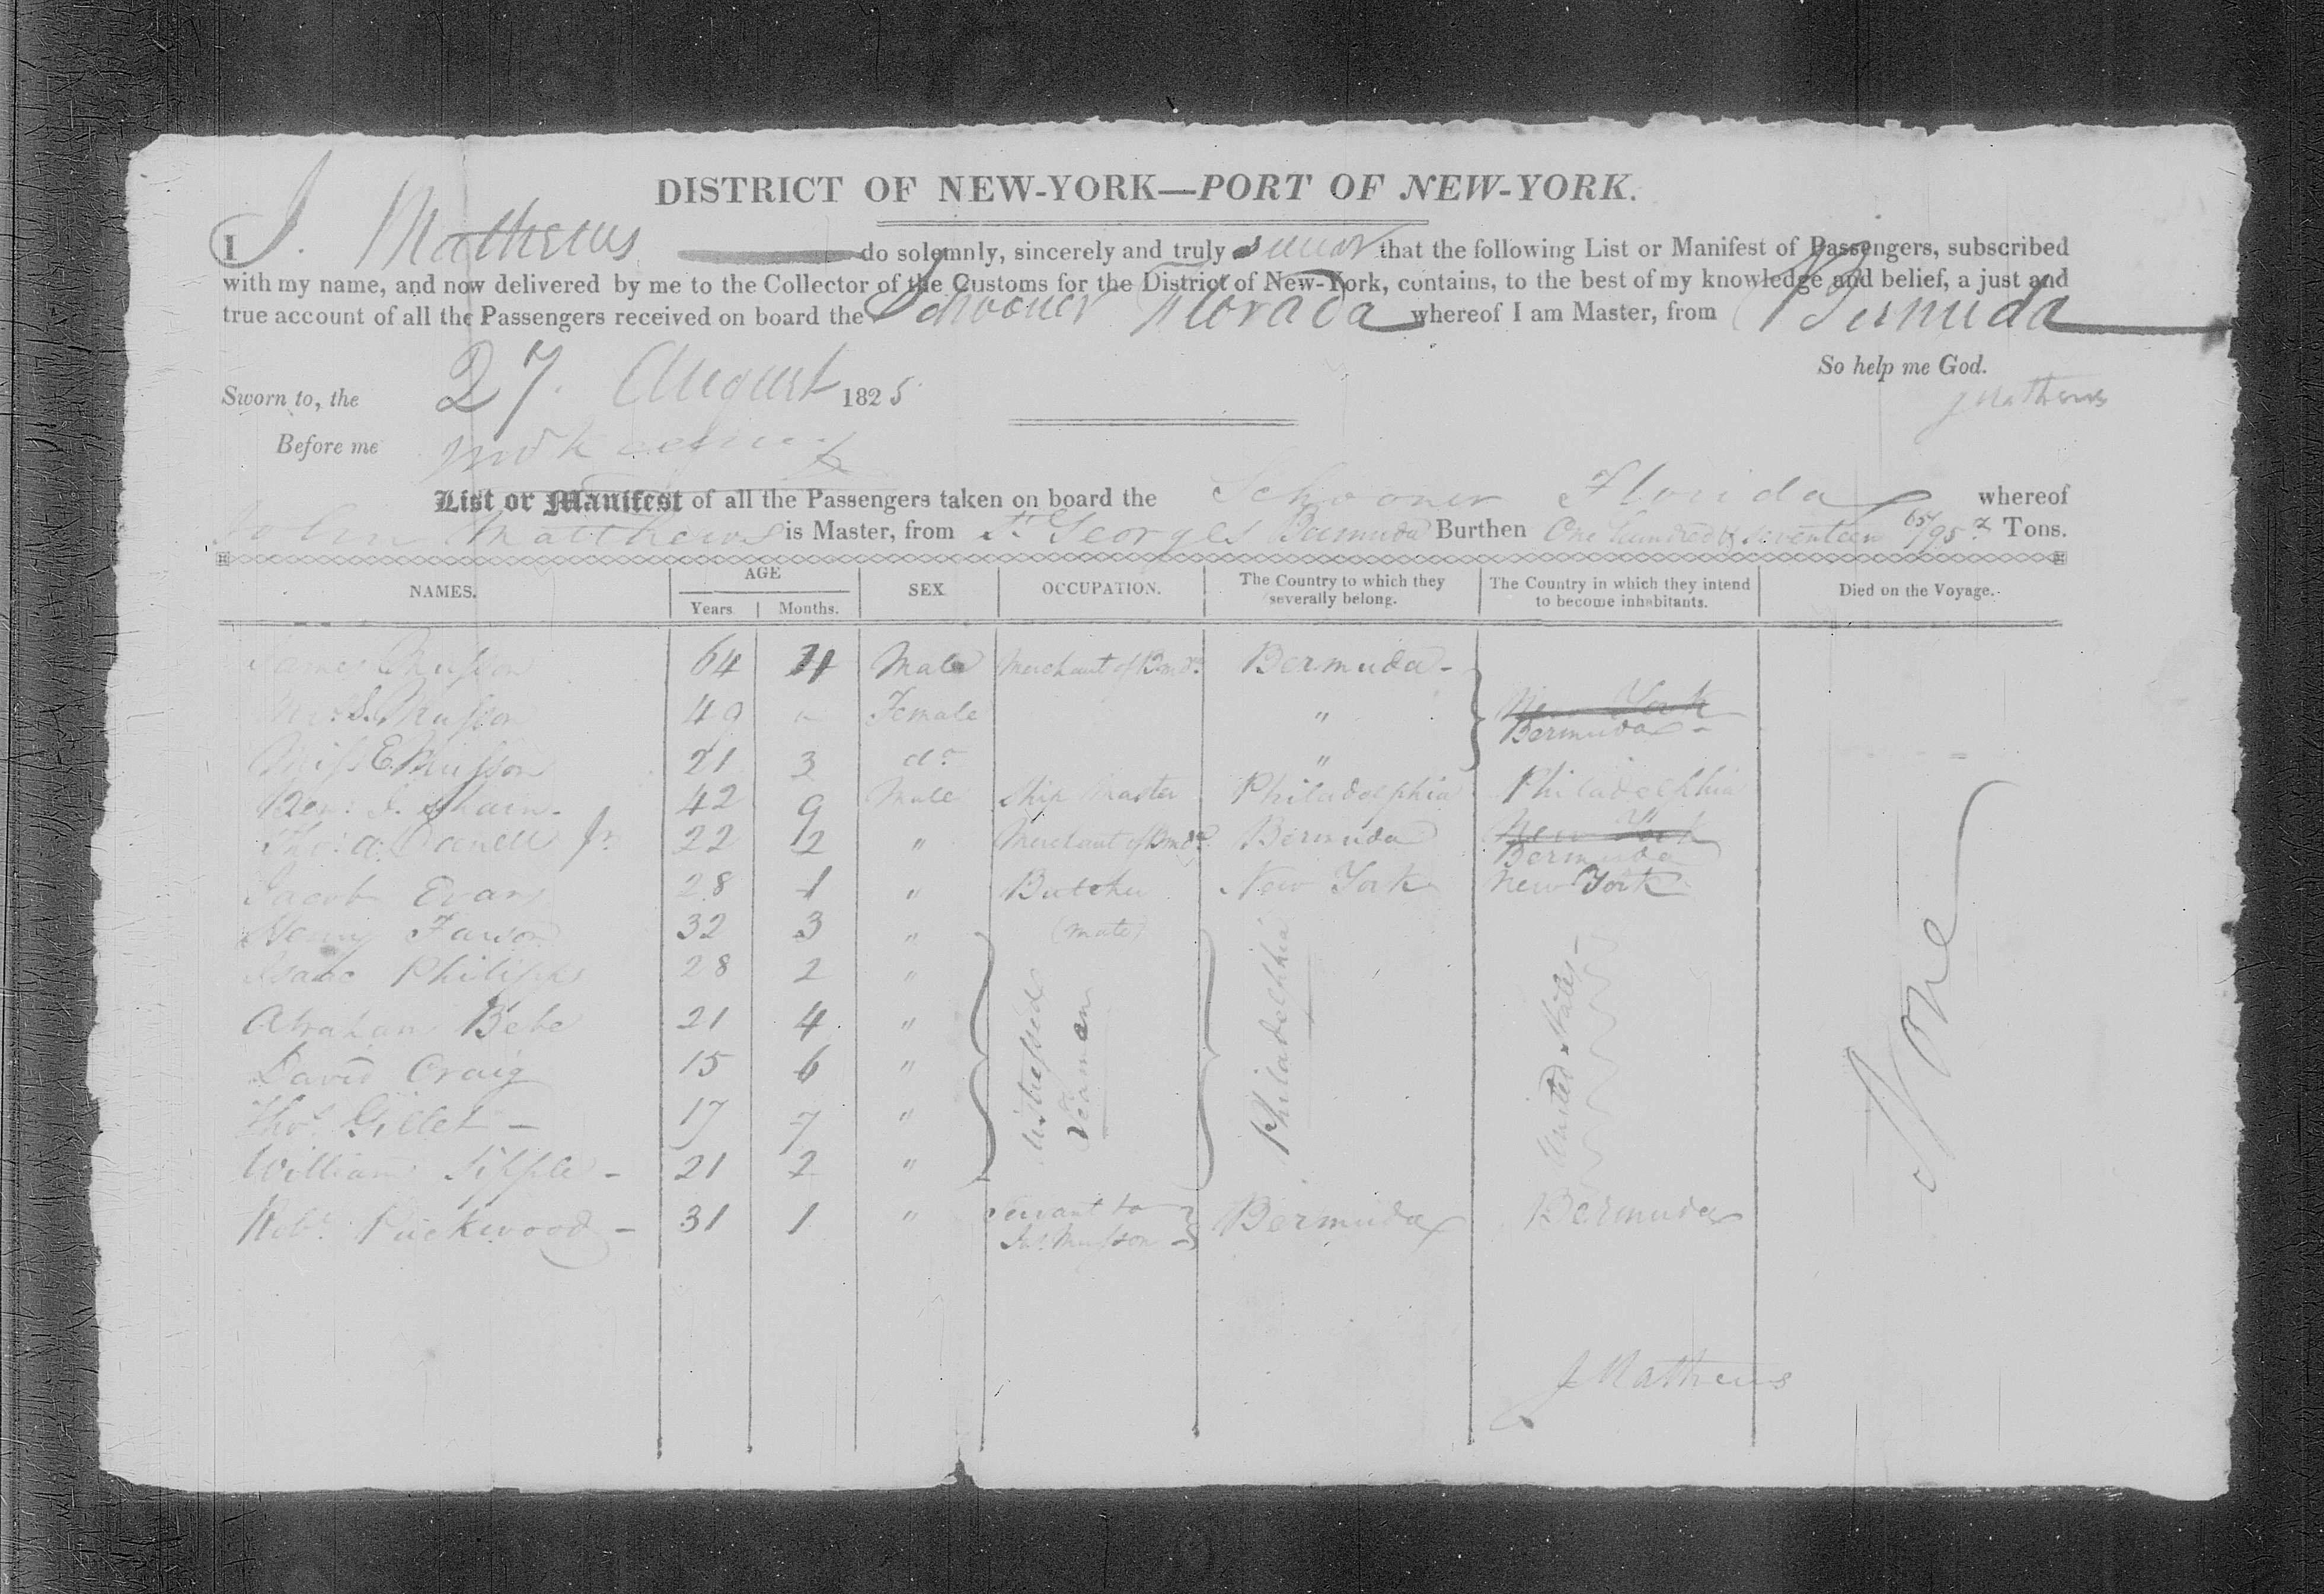 DISTRICT OF NEW-YORK—PORT OF NEW-YORK.
I J. Mathews do solemnly, sincerely and truly swear that the following List or Manifest of Passengers, subscribed
with my name, and now delivered by me to the Collector of the Customs for the District of New-York, contains, to the best of my knowledge and belief, a just and
true account of all the Passengers received on board the Schooner Florada whereof I am Master, from Bermuda
So help me God.
Sworn to, the 27. August 1825
J Mathews
Before me
List or Manifest of all the Passengers taken on board the Schooner Florida whereof
John Matthews is Master, from St Georges Bermuda Burthen One hundred & seventeen 65/95 Tons.
NAMES. AGE Years Months. SEX OCCUPATION. The Country to which they severally belong. The Country in which they intend to become inhabitants. Died on the Voyage.
James Musson 64 Male Merchant of Bmda Bermuda -
Mrs S. Musson 49 - Female " New York Bermuda -
Miss E Musson 21 3 do "
Ben: J. Shain - 42 9 Male Ship Master Philadelphia Philadelphia
Tho: a. Jr 22 2 " Merchant of Bmda Bermuda New York Bermuda
Jacob Evans 28 1 " Butcher New York New York
Henry 32 3 " (mate)
Isaac Philipps 28 2 "
Abraham Bebe 21 4 "
David Craig 15 6 "
Thos Gillet - 17 7 "
William Sipple - 21 2 "
distressed Seamen Philadelphia United States -
Robt Packwood - 31 1 " Servant to Jas Musson - Bermuda Bermuda
None
J Mathews